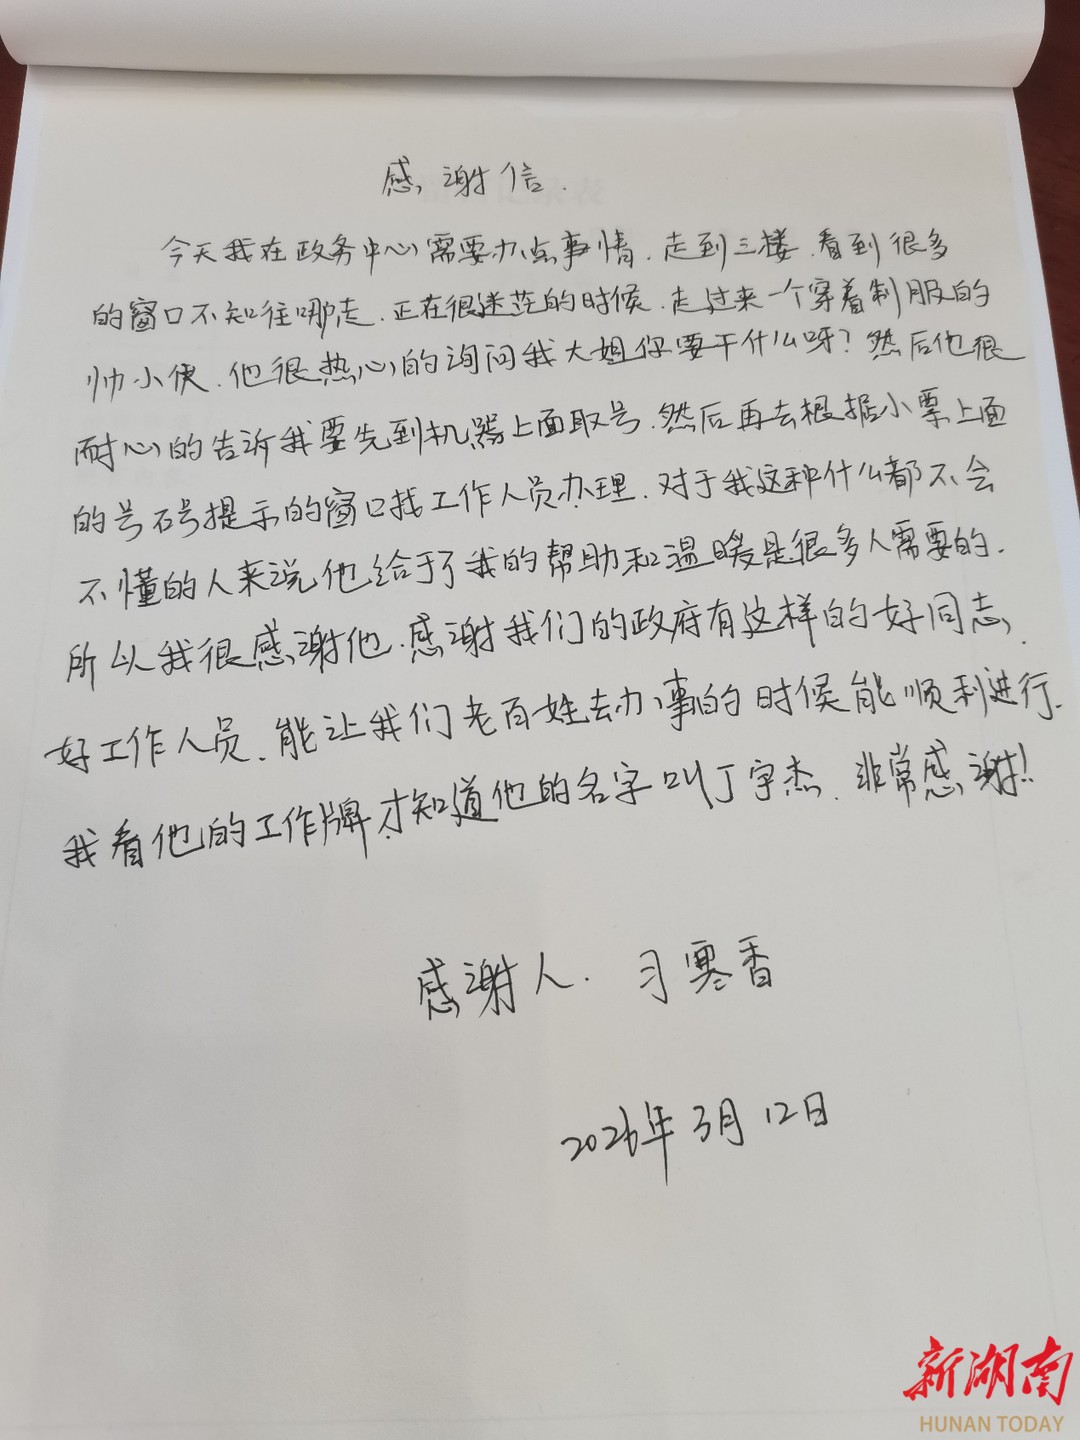 感谢信.
今天我在政务中心需要办点事情.走到三楼.看到很多
的窗口不知往哪走.正在很迷茫的时候.走过来一个穿着制服的
帅小伙.他很热心的询问我大姐你要干什么呀?然后他很
耐心的告诉我要先到机器上面取号.然后再去根据小票上面
的号码号提示的窗口找工作人员办理.对于我这种什么都不会
不懂的人来说他给于了我的帮助和温暖是很多人需要的.
所以我很感谢他.感谢我们的政府有这样的好同志.
好工作人员.能让我们老百姓去办事的时候能顺利进行.
我看他的工作牌才知道他的名字叫丁宇杰.非常感谢!!
感谢人.习寒香
2026年3月12日
新湖南
HUNAN TODAY